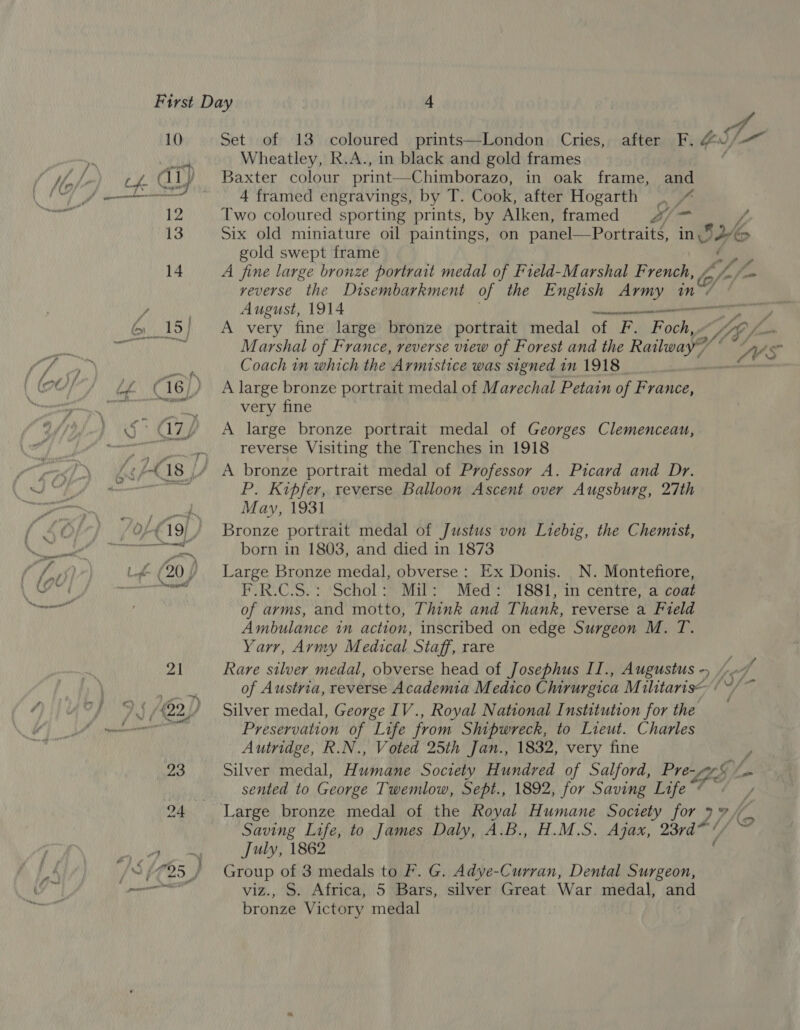 First Day 4
10 Set of 13 coloured prints—London Cries, after F.
Wheatley, R.A., in black and gold frames
11 Baxter colour print—Chimborazo, in oak frame, and
4 framed engravings, by T. Cook, after Hogarth
12 Two coloured sporting prints, by Alken, framed
13 Six old miniature oil paintings, on panel—Portraits, in
gold swept frame
14 A fine large bronze portrait medal of Field-Marshal French,
reverse the Disembarkment of the English Army in
August, 1914
15 A very fine large bronze portrait medal of F. Foch,
Marshal of France, reverse view of Forest and the Railway
Coach in which the Armistice was signed in 1918
16 A large bronze portrait medal of Marechal Petain of France,
very fine
17 A large bronze portrait medal of Georges Clemenceau,
reverse Visiting the Trenches in 1918
18 A bronze portrait medal of Professor A. Picard and Dr.
P. Kipfer, reverse Balloon Ascent over Augsburg, 27th
May, 1931
19 Bronze portrait medal of Justus von Liebig, the Chemist,
born in 1803, and died in 1873
20 Large Bronze medal, obverse : Ex Donis. N. Montefiore,
F.R.C.S. : Schol : Mil : Med : 1881, in centre, a coat
of arms, and motto, Think and Thank, reverse a Field
Ambulance in action, inscribed on edge Surgeon M. T.
Yarr, Army Medical Staff, rare
21 Rare silver medal, obverse head of Josephus II., Augustus
of Austria, reverse Academia Medico Chirurgica Militaris
22 Silver medal, George IV., Royal National Institution for the
Preservation of Life from Shipwreck, to Lieut. Charles
Autridge, R.N., Voted 25th Jan., 1832, very fine
23 Silver medal, Humane Society Hundred of Salford, Pre-
sented to George Twemlow, Sept., 1892, for Saving Life
24 Large bronze medal of the Royal Humane Society for
Saving Life, to James Daly, A.B., H.M.S. Ajax, 23rd
July, 1862
25 Group of 3 medals to F. G. Adye-Curran, Dental Surgeon,
viz., S. Africa, 5 Bars, silver Great War medal, and
bronze Victory medal